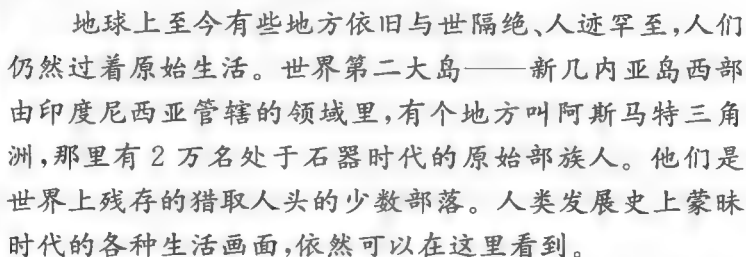 地球上至今有些地方依旧与世隔绝、人迹罕至,人们
仍然过着原始生活。世界第二大岛——新几内亚岛西部
由印度尼西亚管辖的领域里,有个地方叫阿斯马特三角
洲,那里有 2 万名处于石器时代的原始部族人。他们是
世界上残存的猎取人头的少数部落。人类发展史上蒙昧
时代的各种生活画面,依然可以在这里看到。